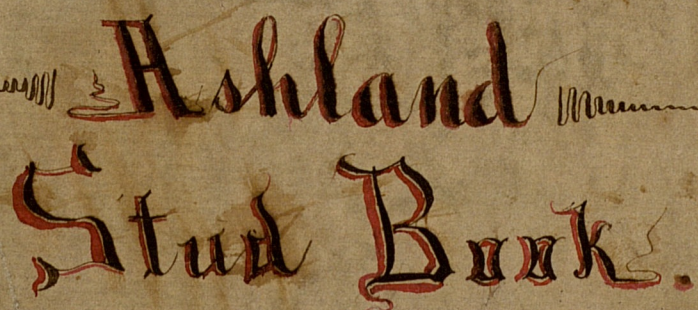 Ashland
Stud Book.